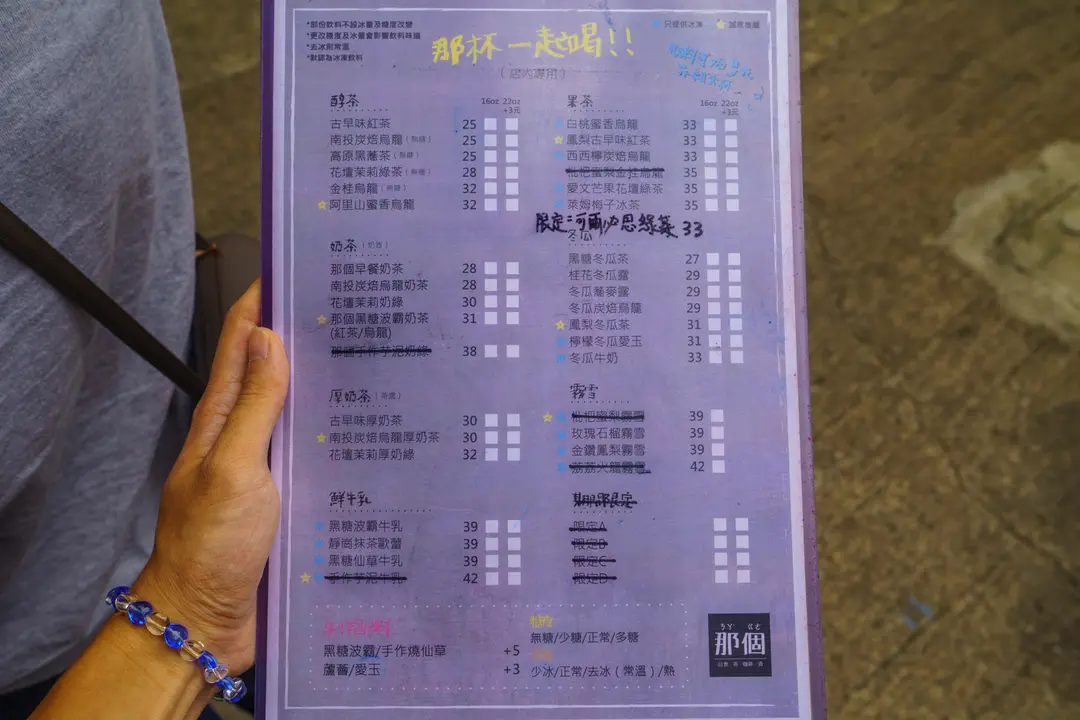 *部份飲料不能冰量及糖度改變
*更改糖度及冰量會影響飲料味道
*去冰則常溫
*默認為冰凍飲料
那杯一起喝!!
(店內專用)
只提供冰凍
誠意推薦
醇茶
16oz 22oz
+3元
古早味紅茶 25
南投炭焙烏龍(無糖) 25
高原黑蕎茶(無糖) 25
花壇茉莉綠茶(無糖) 28
金桂烏龍(無糖) 32
阿里山蜜香烏龍 32
奶茶(奶香)
那個早餐奶茶 28
南投炭焙烏龍奶茶 28
花壇茉莉奶綠 30
那個黑糖波霸奶茶 31
(紅茶/烏龍)
那個手作芋泥奶綠 38
厚奶茶(茶濃)
古早味厚奶茶 30
南投炭焙烏龍厚奶茶 30
花壇茉莉厚奶綠 32
鮮牛乳
黑糖波霸牛乳 39
靜崗抹茶歐蕾 39
黑糖仙草牛乳 39
手作芋泥牛乳 42
果茶
16oz 22oz
+3元
白桃蜜香烏龍 33
鳳梨古早味紅茶 33
西西檸炭焙烏龍 33
枇杷蜜梨金桂烏龍 35
愛文芒果花壇綠茶 35
萊姆梅子冰茶 35
限定:河爾必思綠茶 33
冬瓜
黑糖冬瓜茶 27
桂花冬瓜露 29
冬瓜蕎麥露 29
冬瓜炭焙烏龍 29
鳳梨冬瓜茶 31
檸檬冬瓜愛玉 31
冬瓜牛奶 33
霧雪
枇杷蜜梨霧雪 39
玫瑰石榴霧雪 39
金鑽鳳梨霧雪 39
荔荔火龍霧雪 42
期間限定
限定A
限定B
限定C
限定D
黑糖波霸/手作燒仙草 +5
蘆薈/愛玉 +3
糖度
無糖/少糖/正常/多糖
少冰/正常/去冰(常溫)/熱
ㄋㄚˋ ㄍㄜ
那個